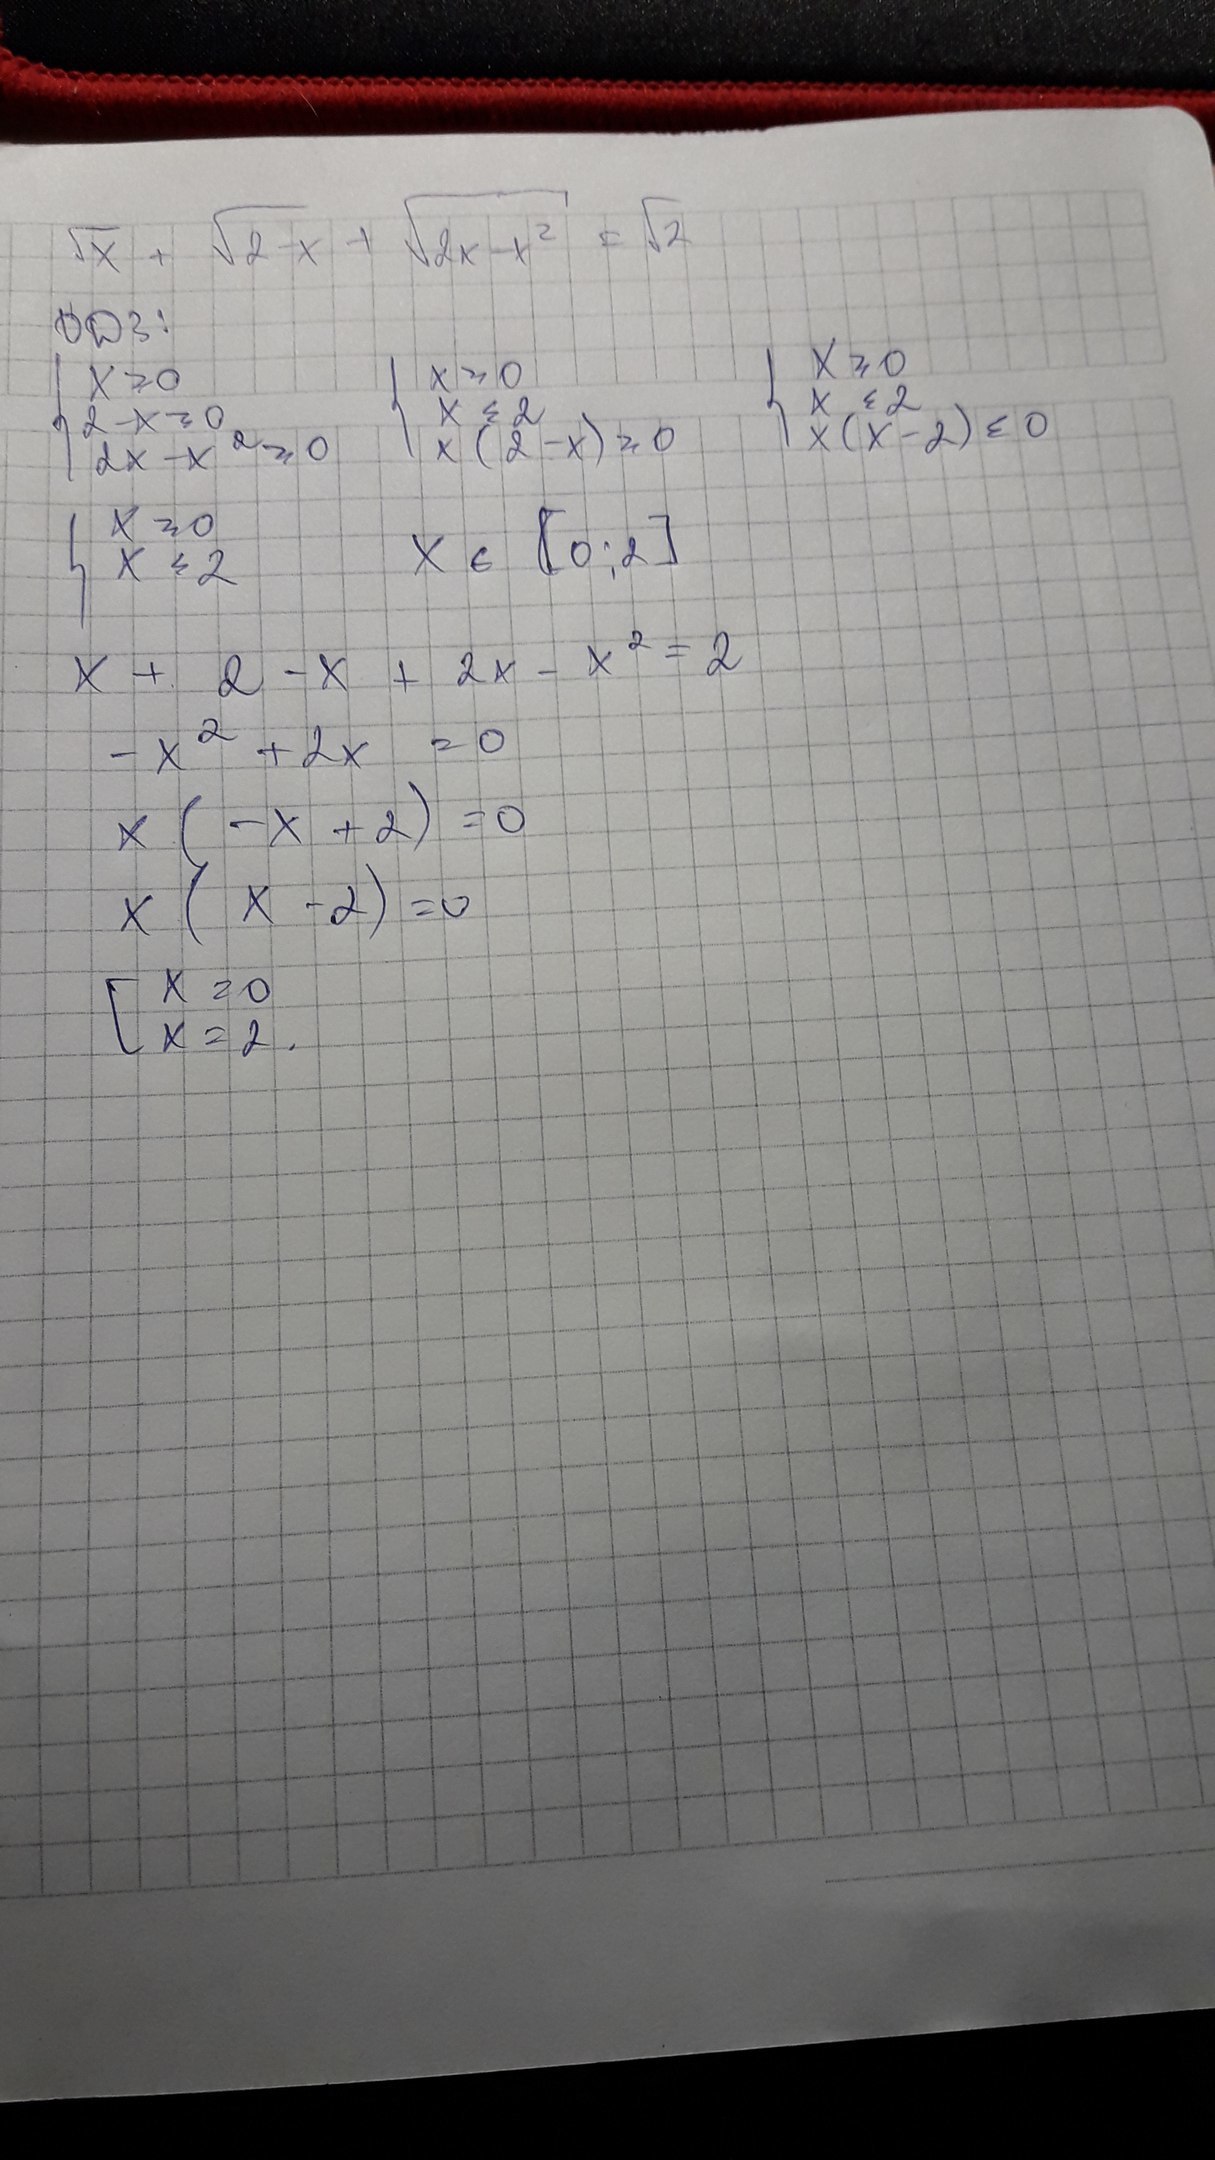 √x + √(2-x) + √(2x-x²) = √2
ОДЗ:
{ x ≥ 0 { x ≥ 0 { x ≥ 0
2-x ≥ 0 x ≤ 2 x ≤ 2
2x-x² ≥ 0 x(2-x) ≥ 0 x(x-2) ≤ 0
{ x ≥ 0
x ≤ 2 x ∈ [0;2]
x + 2 - x + 2x - x² = 2
-x² + 2x = 0
x(-x+2) = 0
x(x-2) = 0
[ x = 0
x = 2.